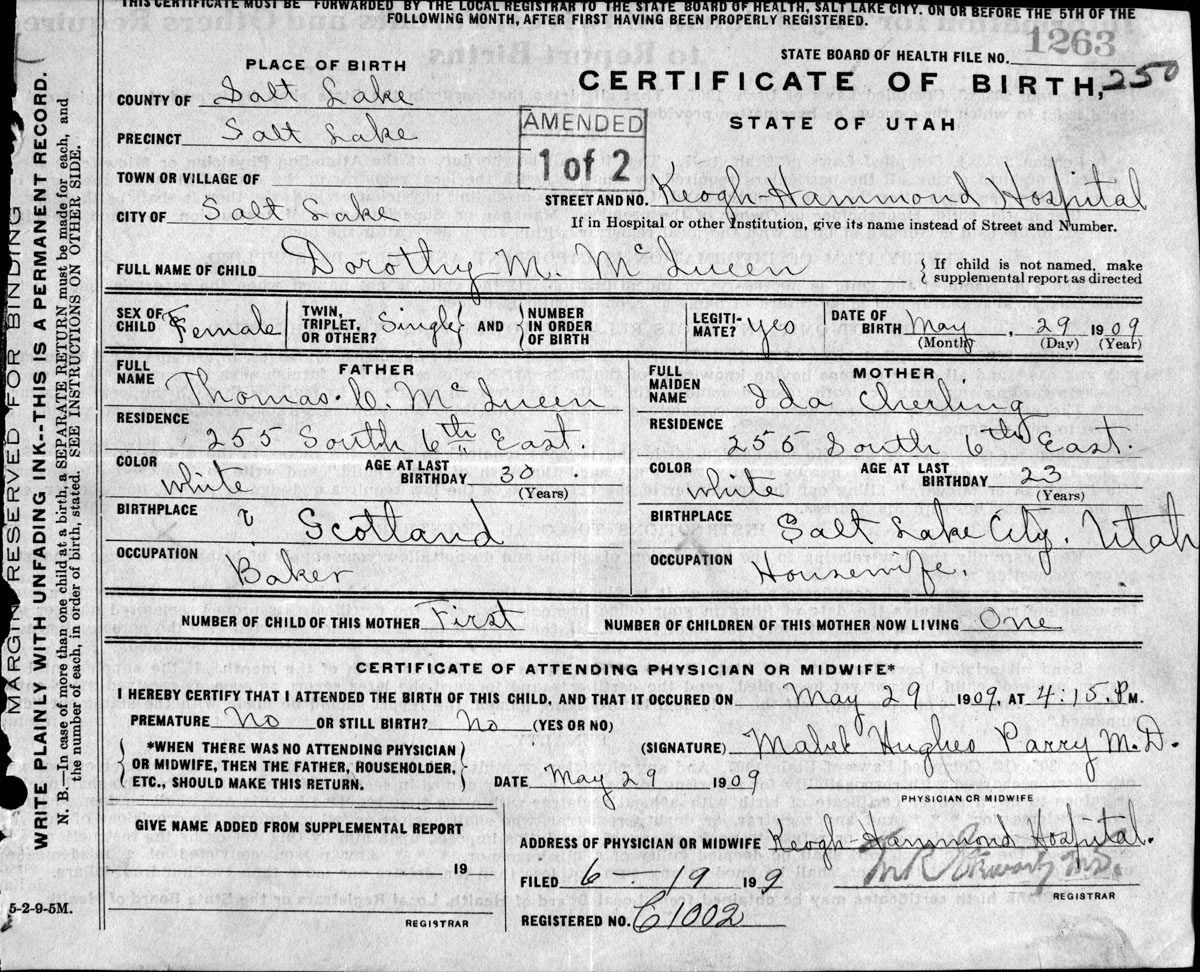 THIS CERTIFICATE MUST BE FORWARDED BY THE LOCAL REGISTRAR TO THE STATE BOARD OF HEALTH, SALT LAKE CITY, ON OR BEFORE THE 5TH OF THE
FOLLOWING MONTH, AFTER FIRST HAVING BEEN PROPERLY REGISTERED.
STATE BOARD OF HEALTH FILE NO. 1263
PLACE OF BIRTH
CERTIFICATE OF BIRTH, 250
COUNTY OF Salt Lake
STATE OF UTAH
PRECINCT Salt Lake
AMENDED
1 of 2
TOWN OR VILLAGE OF
STREET AND NO. Keogh-Hammond Hospital
CITY OF Salt Lake
If in Hospital or other Institution, give its name instead of Street and Number.
FULL NAME OF CHILD Dorothy M. McLueen
If child is not named, make
supplemental report as directed
SEX OF CHILD Female
TWIN, TRIPLET, OR OTHER? Single AND
NUMBER IN ORDER OF BIRTH
LEGITI-MATE? yes
DATE OF BIRTH May, 29 1909
(Month) (Day) (Year)
FATHER
FULL NAME Thomas. C. McLueen
RESIDENCE
255 South 6th East.
COLOR white
AGE AT LAST BIRTHDAY 30
(Years)
BIRTHPLACE Scotland
OCCUPATION
Baker
MOTHER
FULL MAIDEN NAME Ida Cherling
RESIDENCE
255 South 6th East.
COLOR white
AGE AT LAST BIRTHDAY 23
(Years)
BIRTHPLACE
Salt Lake City, Utah
OCCUPATION Housewife.
NUMBER OF CHILD OF THIS MOTHER First
NUMBER OF CHILDREN OF THIS MOTHER NOW LIVING One
CERTIFICATE OF ATTENDING PHYSICIAN OR MIDWIFE*
I HEREBY CERTIFY THAT I ATTENDED THE BIRTH OF THIS CHILD, AND THAT IT OCCURED ON May 29 1909, AT 4:15 P.M.
PREMATURE No OR STILL BIRTH? No (YES OR NO)
*WHEN THERE WAS NO ATTENDING PHYSICIAN
OR MIDWIFE, THEN THE FATHER, HOUSEHOLDER,
ETC., SHOULD MAKE THIS RETURN.
(SIGNATURE) Mabel Hughes Parry M.D.
DATE May 29 1909
PHYSICIAN OR MIDWIFE
GIVE NAME ADDED FROM SUPPLEMENTAL REPORT
19
REGISTRAR
ADDRESS OF PHYSICIAN OR MIDWIFE Keogh-Hammond Hospital.
FILED 6 19 199
REGISTRAR
REGISTERED NO. C1002
5-2-9-5M.
MARGIN RESERVED FOR BINDING
WRITE PLAINLY WITH UNFADING INK--THIS IS A PERMANENT RECORD.
N. B.—In case of more than one child at a birth, a SEPARATE RETURN must be made for each, and
the number of each, in order of birth, stated. SEE INSTRUCTIONS ON OTHER SIDE.